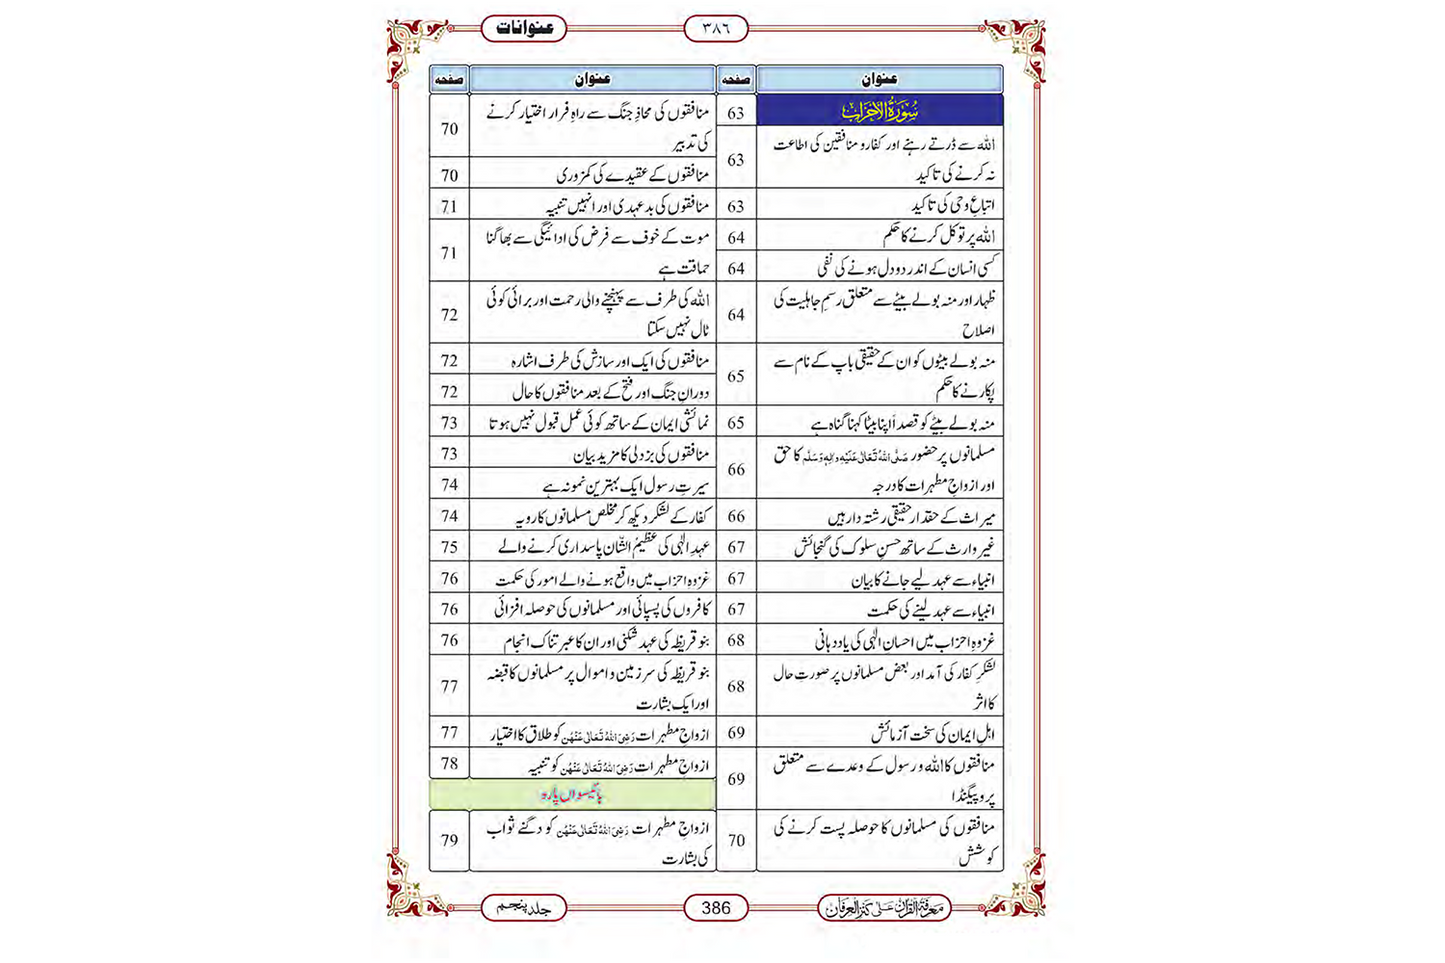 عنوانات
٣٨٦
عنوان صفحہ
سُوْرَۃُ الْاَحْزَاب 63
اللہ سے ڈرتے رہنے اور کفار و منافقین کی اطاعت
نہ کرنے کی تاکید 63
اتباعِ وحی کی تاکید 63
اللہ پر توکل کرنے کا حکم 64
کسی انسان کے اندر دو دل ہونے کی نفی 64
ظہار اور منہ بولے بیٹے سے متعلق رسمِ جاہلیت کی
اصلاح 64
منہ بولے بیٹوں کو ان کے حقیقی باپ کے نام سے
پکارنے کا حکم 65
منہ بولے بیٹے کو قصداً اپنا بیٹا کہنا گناہ ہے 65
مسلمانوں پر حضور صَلَّی اللہُ تَعَالٰی عَلَیْہِ وَاٰلِہٖ وَسَلَّم کا حق
اور ازواجِ مطہرات کا درجہ 66
میراث کے حقدار حقیقی رشتہ دار ہیں 66
غیر وارث کے ساتھ حسنِ سلوک کی گنجائش 67
انبیاء سے عہد لیے جانے کا بیان 67
انبیاء سے عہد لینے کی حکمت 67
غزوہِ احزاب میں احسانِ الٰہی کی یاد دہانی 68
لشکرِ کفار کی آمد اور بعض مسلمانوں پر صورتِ حال
کا اثر 68
اہلِ ایمان کی سخت آزمائش 69
منافقوں کا اللہ و رسول کے وعدے سے متعلق
پروپیگنڈا 69
منافقوں کی مسلمانوں کا حوصلہ پست کرنے کی
کوشش 70
عنوان صفحہ
منافقوں کی محاذِ جنگ سے راہِ فرار اختیار کرنے
کی تدبیر 70
منافقوں کے عقیدے کی کمزوری 70
منافقوں کی بد عہدی اور انہیں تنبیہ 71
موت کے خوف سے فرض کی ادائیگی سے بھاگنا
حماقت ہے 71
اللہ کی طرف سے پہنچنے والی رحمت اور برائی کوئی
ٹال نہیں سکتا 72
منافقوں کی ایک اور سازش کی طرف اشارہ 72
دورانِ جنگ اور فتح کے بعد منافقوں کا حال 72
نمائشی ایمان کے ساتھ کوئی عمل قبول نہیں ہوتا 73
منافقوں کی بزدلی کا مزید بیان 73
سیرتِ رسول ایک بہترین نمونہ ہے 74
کفار کے لشکر دیکھ کر مخلص مسلمانوں کا رویہ 74
عہدِ الٰہی کی عظیمُ الشّان پاسداری کرنے والے 75
غزوہِ احزاب میں واقع ہونے والے امور کی حکمت 76
کافروں کی پسپائی اور مسلمانوں کی حوصلہ افزائی 76
بنو قریظہ کی عہد شکنی اور ان کا عبرتناک انجام 76
بنو قریظہ کی سرزمین و اموال پر مسلمانوں کا قبضہ
اور ایک بشارت 77
ازواجِ مطہرات رَضِیَ اللہُ تَعَالٰی عَنْہُن کو طلاق کا اختیار 77
ازواجِ مطہرات رَضِیَ اللہُ تَعَالٰی عَنْہُن کو تنبیہ 78
بائیسواں پارہ
ازواجِ مطہرات رَضِیَ اللہُ تَعَالٰی عَنْہُن کو دگنے ثواب
کی بشارت 79
مَعْرِفَۃُ الْقُرْاٰن عَلٰی کَنْزِ الْعِرْفَان
386
جلد پنجم